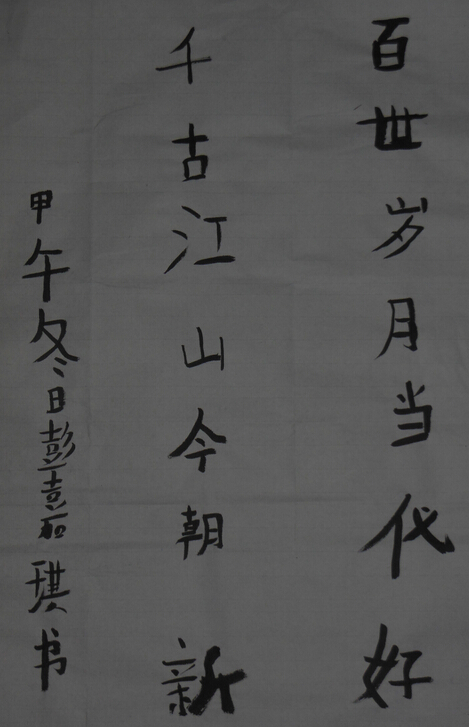 百世岁月当代好
千古江山今朝新
甲午冬日彭嘉琪书